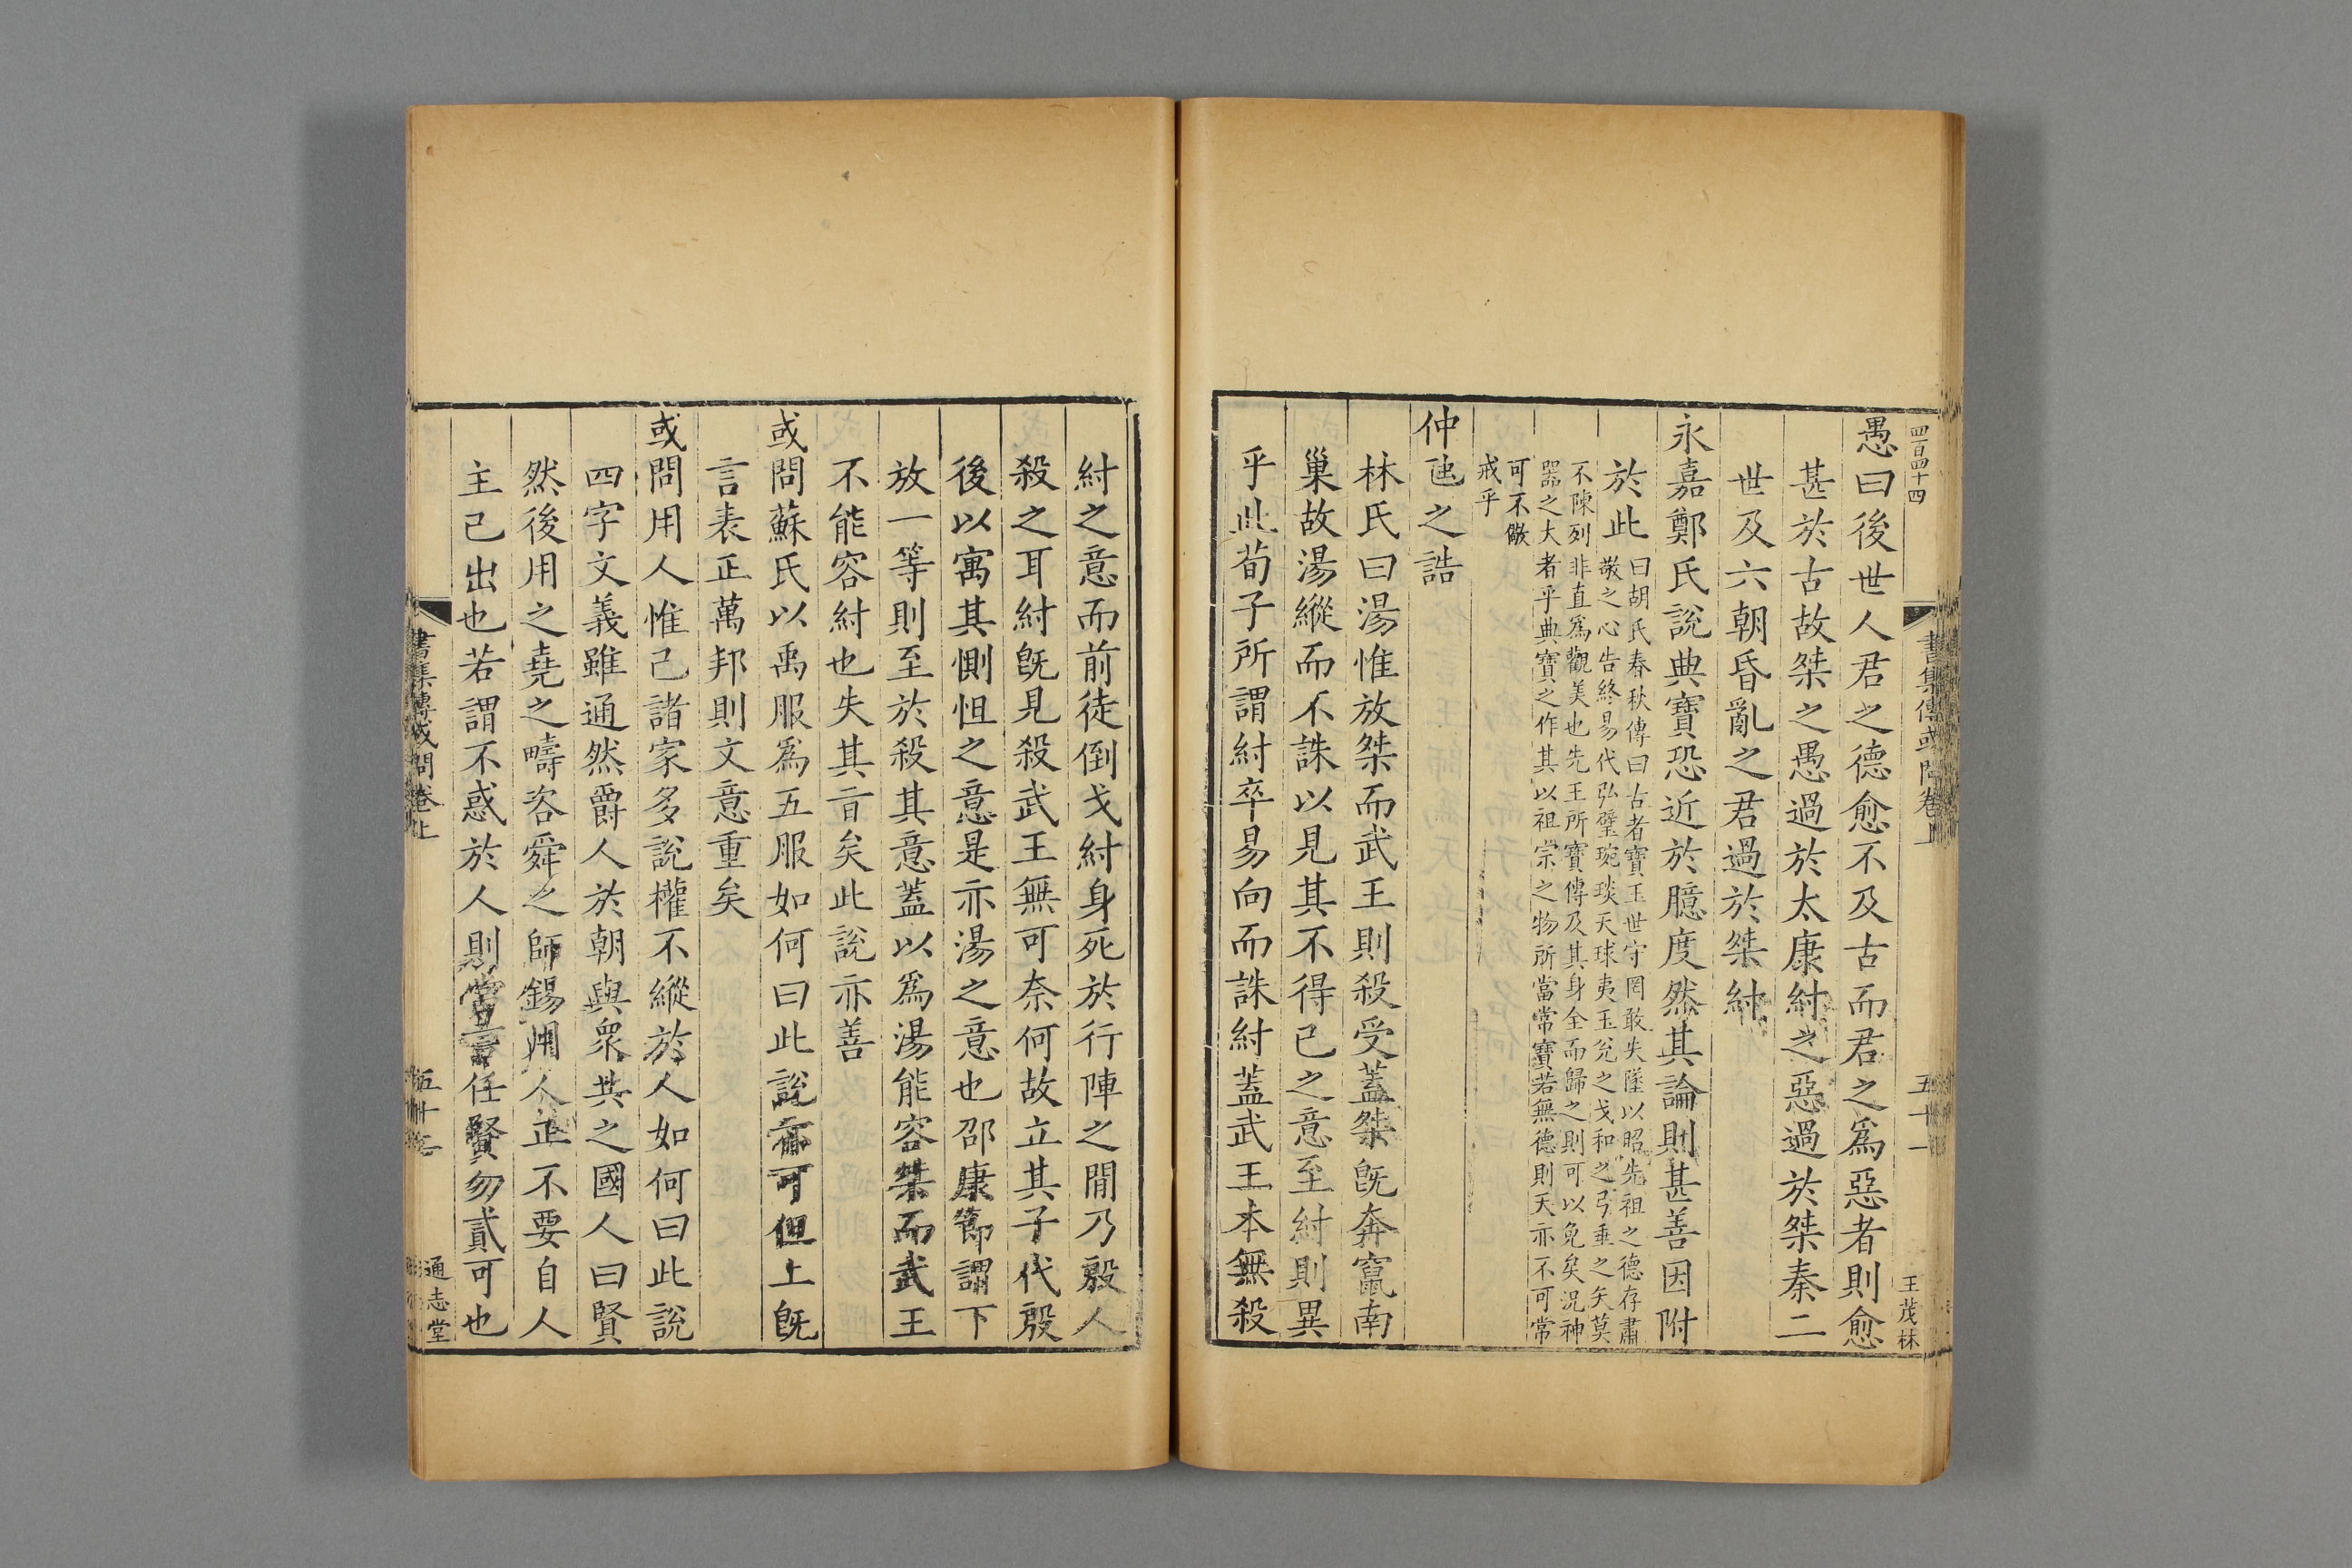 四百四十四
書集傳或問卷上
五十一
王茂林
愚曰後世人君之德愈不及古而君之爲惡者則愈
甚於古故桀之愚過於太康紂之惡過於桀秦二
世及六朝昏亂之君過於桀紂
永嘉鄭氏說典寶恐近於臆度然其論則甚善因附
於此
曰胡氏春秋傳曰古者寶玉世守罔敢失墜以昭先祖之德存肅
敬之心告終易代弘璧琬琰天球夷玉兊之戈和之弓垂之矢莫
不陳列非直爲觀美也先王所寶傳及其身全而歸之則可以免矣況神
器之大者乎典寶之作其以祖宗之物所當常寶若無德則天亦不可常
可不儆
戒乎
仲虺之誥
林氏曰湯惟放桀而武王則殺受蓋桀旣奔竄南
巢故湯縱而不誅以見其不得已之意至紂則異
乎此荀子所謂紂卒易向而誅紂蓋武王本無殺
紂之意而前徒倒戈紂身死於行陣之間乃殷人
殺之耳紂旣見殺武王無可奈何故立其子代殷
後以寓其惻怛之意是亦湯之意也邵康節謂下
放一等則至於殺其意蓋以爲湯能容桀而武王
不能容紂也失其旨矣此說亦善
或問蘇氏以禹服爲五服如何曰此說亦可但上旣
言表正萬邦則文意重矣
或問用人惟己諸家多說權不縱於人如何曰此說
四字文義雖通然爵人於朝與衆共之國人曰賢
然後用之堯之疇咨舜之師錫用人正不要自人
主已出也若謂不惑於人則當言任賢勿貳可也
書集傳或問卷上
通志堂